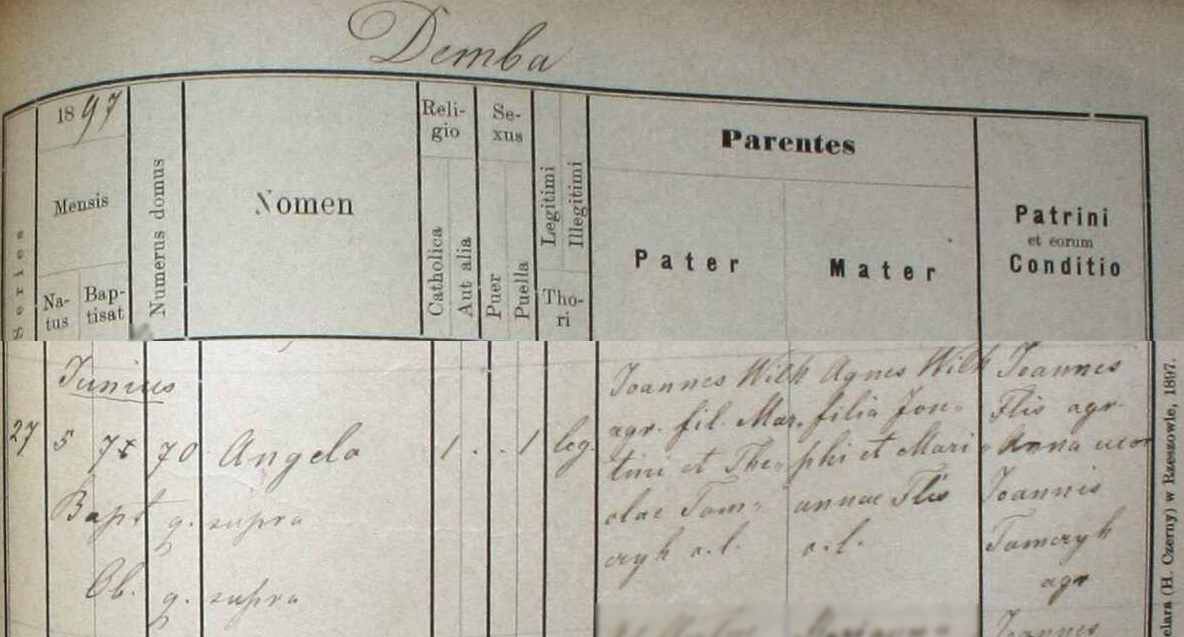 Demba
1897
Mensis
Natus
Baptisat
Series
Numerus domus
Nomen
Religio
Catholica
Aut alia
Sexus
Puer
Puella
Legitimi
Illegitimi
Thori
Parentes
Pater
Mater
Patrini
et eorum
Conditio
Junius
27 5 7 70 Angela 1 . . 1 leg.
Joannes Wilk
agr. fil. Mar-
tini et The-
clae Tom-
czyk a.l.
Agnes Wilk
filia Jose-
phi et Mari-
annae Flis
a.l.
Joannes
Flis agr.
Anna uxor
Joannis
Tomczyk
agr
Bapt q. supra
Ob. q. supra
Joannes
(H. Czerny) w Rzeszowie, 1897.